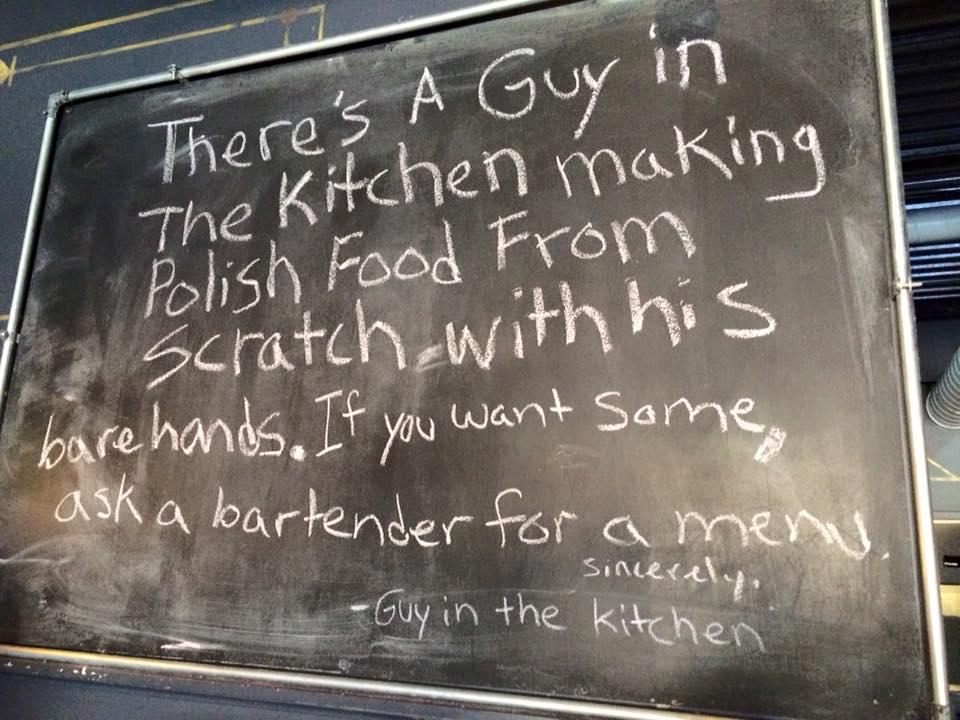 There's A Guy in
The Kitchen making
Polish Food From
Scratch with his
bare hands. If you want some,
ask a bartender for a menu.
sincerely.
-Guy in the kitchen